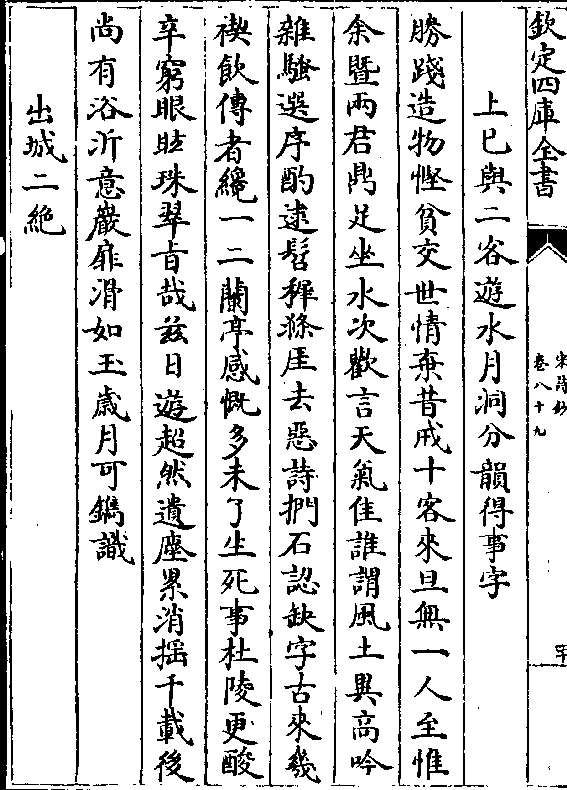 欽定四庫全書
宋詩鈔
卷八十九
上巳與二客遊水月洞分韻得事字
勝踐造物慳貧交世情棄昔戒十客來旦無一人至惟
余暨兩君鼎足坐水次歡言天氣佳誰謂風土異高吟
雜騷選序酌逮髫稺滌厓去惡詩捫石認缺字古來幾
禊飲傳者纔一二蘭亭感慨多未了生死事杜陵更酸
辛窮眼眩珠翠旨哉兹日遊超然遺塵累消揺千載後
尚有浴沂意巖扉滑如玉歲月可鐫識
出城二絶